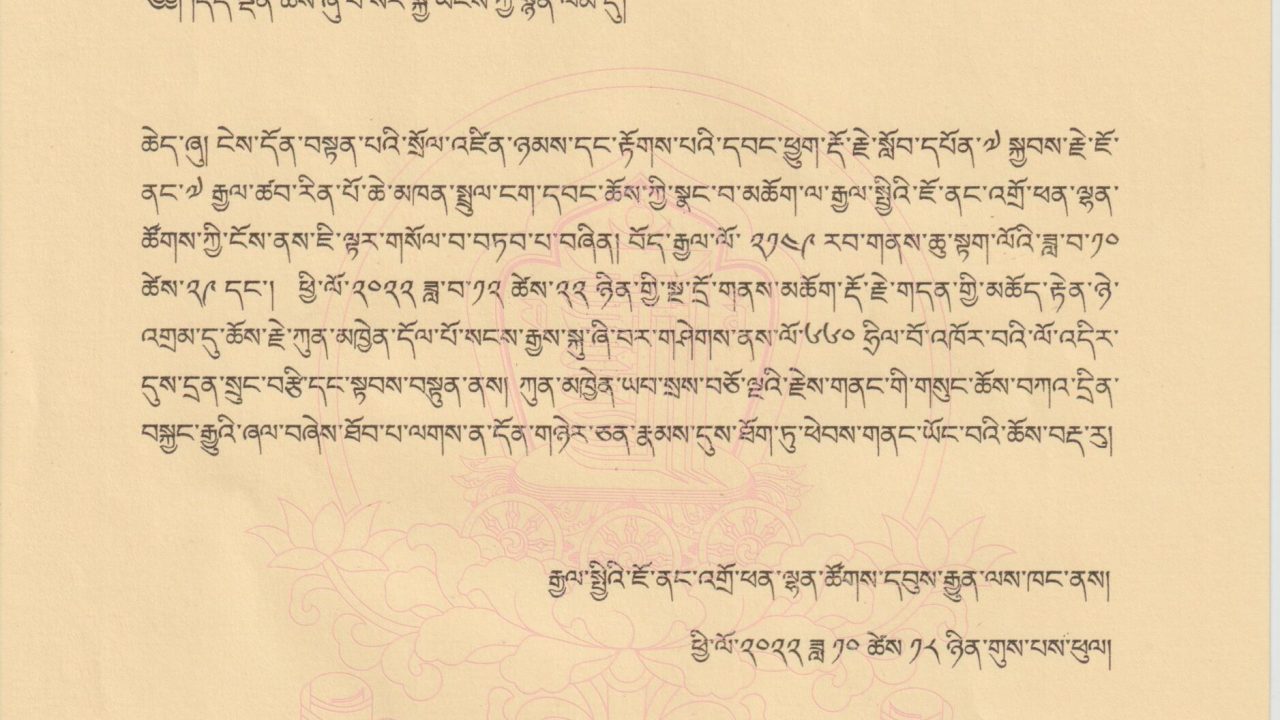 ༄༅། །དད་ལྡན་ཆོས་ཞུ་བ་སེར་སྐྱ་མངས་ཀྱི་སྙན་ལམ་དུ།
ཆེད་ཞུ། ངེས་དོན་བསྟན་པའི་སྲོལ་འཛིན་ཉམས་དང་རྟོགས་པའི་དབང་ཕྱུག་རྡོ་རྗེ་སློབ་དཔོན་༧ སྐྱབས་རྗེ་ཇོ་
ནང་༧ རྒྱལ་ཚབ་རིན་པོ་ཆེ་མཁན་སྤྲུལ་ངག་དབང་ཆོས་ཀྱི་སྣང་བ་མཆོག་ལ་རྒྱལ་སྤྱིའི་ཇོ་ནང་འགྲོ་ཕན་ལྷན་
ཚོགས་ཀྱི་ངོས་ནས་ཇི་ལྟར་གསོལ་བ་བཏབ་པ་བཞིན། བོད་རྒྱལ་ལོ་ ༢༡༤༩ རབ་གནས་ཆུ་སྟག་ལོའི་ཟླ་བ་༡༠
ཚེས་༢༩ དང་། ཕྱི་ལོ་༢༠༢༢ ཟླ་བ་༡༢ ཚེས་༢༢ ཉིན་གྱི་སྔ་དྲོ་གནས་མཆོག་རྡོ་རྗེ་གདན་གྱི་མཆོད་རྟེན་ཉེ་
འགྲམ་དུ་ཆོས་རྗེ་ཀུན་མཁྱེན་དོལ་པོ་སངས་རྒྱས་སྐུ་ཞི་བར་གཤེགས་ནས་ལོ་༦༦༠ ཧྲིལ་པོ་འཁོར་བའི་ལོ་འདིར་
དུས་དྲན་སྲུང་བརྩི་དང་སྟབས་བསྟུན་ནས། ཀུན་མཁྱེན་ཡབ་སྲས་བཅོ་ལྔའི་རྗེས་གནང་གི་གསུང་ཆོས་བཀའ་དྲིན་
བསྐྱང་རྒྱུའི་ཞལ་བཞེས་ཐོབ་པ་ལགས་ན་དོན་གཉེར་ཅན་རྣམས་དུས་ཐོག་ཏུ་ཕེབས་གནང་ཡོང་བའི་ཆོས་བརྡ་རུ།
རྒྱལ་སྤྱིའི་ཇོ་ནང་འགྲོ་ཕན་ལྷན་ཚོགས་དབུས་རྒྱུན་ལས་ཁང་ནས།
ཕྱི་ལོ་༢༠༢༢ ཟླ ༡༠ ཚེས ༡༨ ཉིན་གུས་པས་ཕུལ།